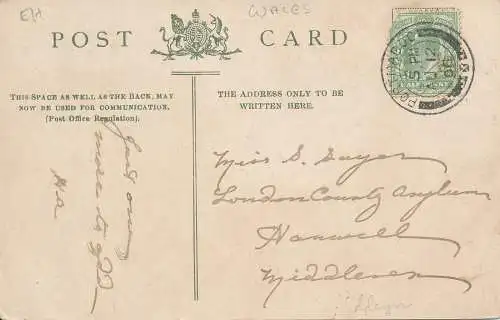 E/1
WALES
POST CARD
THIS SPACE AS WELL AS THE BACK, MAY
NOW BE USED FOR COMMUNICATION.
(Post Office Regulation).
THE ADDRESS ONLY TO BE
WRITTEN HERE.
Just one
more to go
Miss S.
London County Asylum
Hanwell
Middlesex